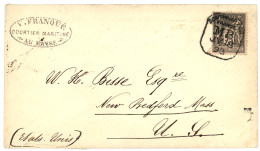 V. FRANQUE
COURTIER MARITIME
AU HAVRE
W. H. Besse Esqre
New Bedford Mass.
U. S.
(Etats-Unis)